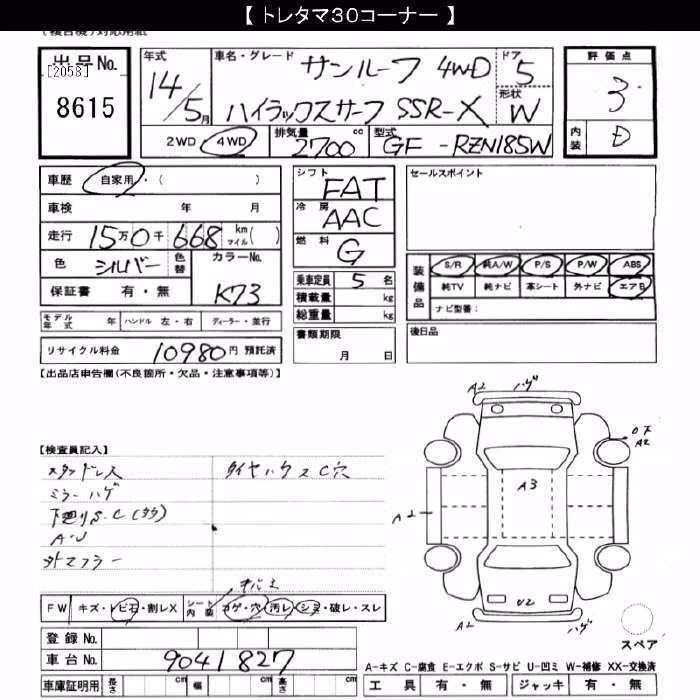 【 トレタマ30コーナー 】
(複合機)対応用紙
出品No. [2058] 8615
年式 14/5月
車名・グレード サンルーフ 4WD
ハイラックスサーフ SSR-X
ドア 5
形状 W
評価点 3
内装 D
2WD 4WD 排気量 2700 cc 型式 GF-RZN185W
車歴 自家用・( )
車検 年 月
走行 15万0千668 km マイル( )
色 シルバー 色替 カラーNo. K73
保証書 有・無
モデル年式 年 ハンドル 左・右 ディーラー・並行
リサイクル料金 10980円 預託済
シフト FAT
冷房 AAC
燃料 G
乗車定員 5 名
積載量 kg
総重量 kg
書類期限 月 日
セールスポイント
装備品 S/R 純A/W P/S P/W ABS
純TV 純ナビ 革シート 外ナビ エアB
ナビ型番:
後日品
【出品店申告欄(不良箇所・欠品・注意事項等)】
【検査員記入】
スタッドレス
ミラーハゲ
下廻りS.C(多)
A-J
外マフラー
ダイヤハウスC穴
A2 ハゲ
A2
A3
A2
U2
A2 ハゲ
スペア
FW キズ・トビ石・割レX シート内装 コゲ・穴・汚レ・シミ・破レ・スレ
登録No.
車台No. 9041827
車庫証明用 長さ cm 幅 cm 高さ cm
A-キズ C-腐食 E-エクボ S-サビ U-凹ミ W-補修 XX-交換済
工具 有・無 ジャッキ 有・無